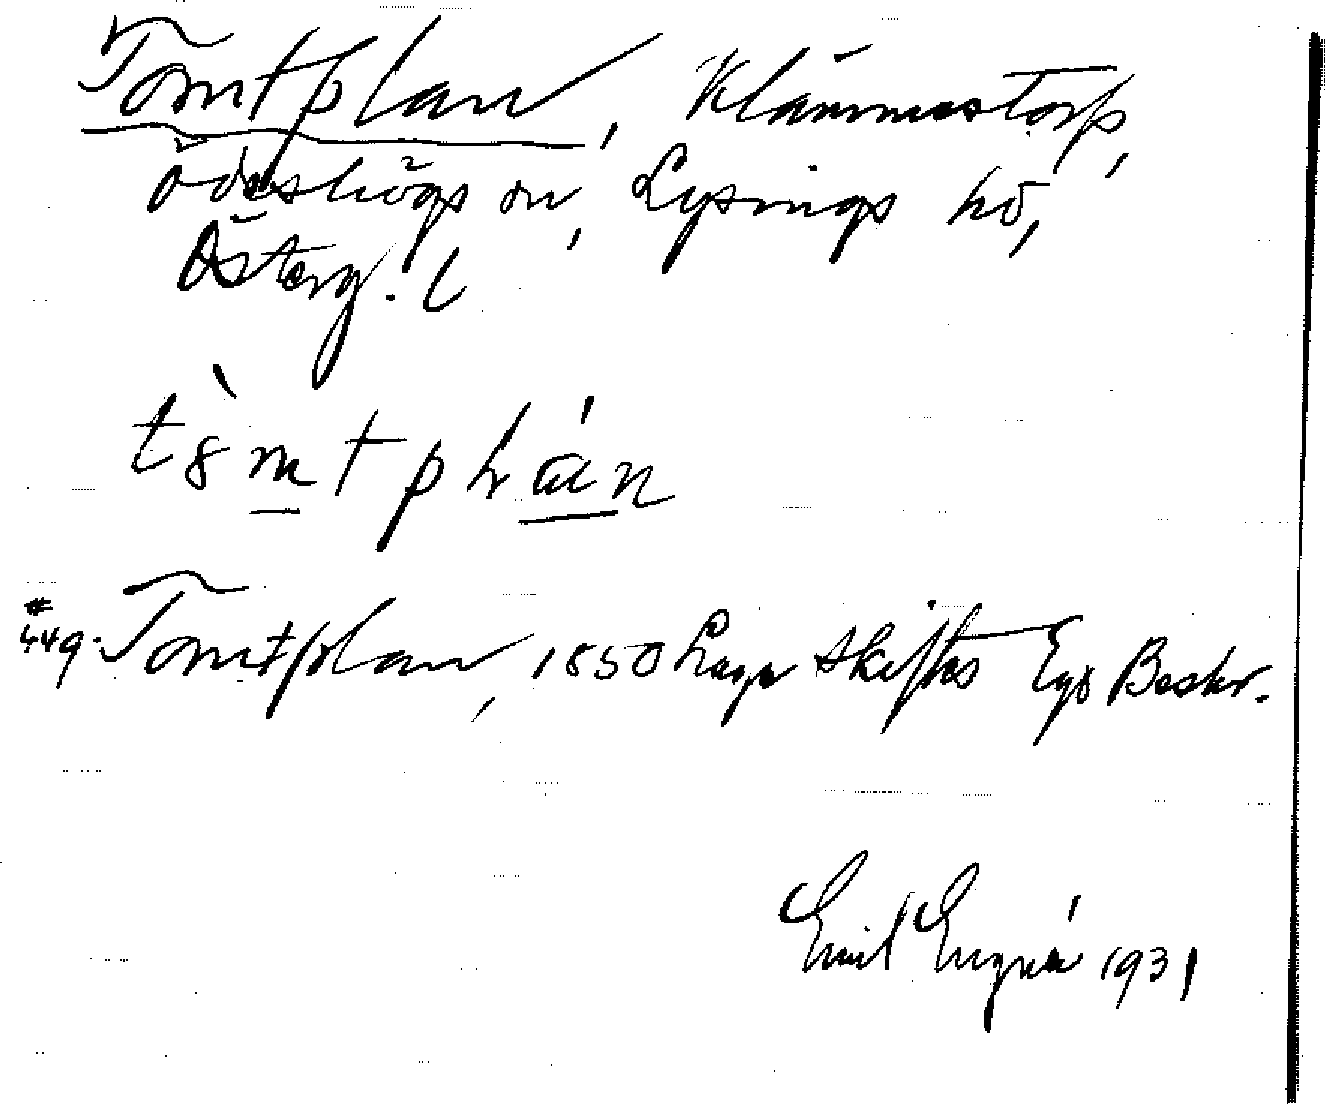 Tomtplan, Klämmestorp,
Ödeshögs sn, Lysings hd,
Österg. l
t8mtplán
#
449. Tomtplan, 1850 Laga Skiftes Egobeskr.
Emil Engné 1931